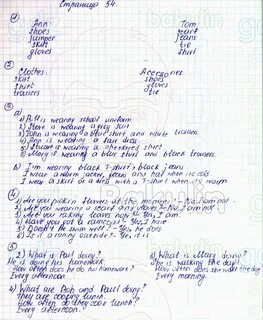 Страница 54.
①
Ann: Tom:
shoes scarf
jumper jeans
skirt tie
gloves shirt
②
Clothes: Accessories
skirt shoes
shirt gloves
trousers tie
③
a)
1) Bill is wearing school uniform
2) is wearing a grey suit
3) John is wearing a blue shirt and white trousers
4) Ann is wearing a fur
5) is wearing a shirt
6) Mary is wearing a blue skirt and black trousers
b) I'm wearing black T-shirt, black jeans
I wear a warm jacket, jeans and hat when it's cold
I wear a skirt or a dress with a T-shirt when it's warm
④
1) Are you flowers at the moment? - No, I am not
2) Are you wearing a scarf and gloves? - No, I am not
3) Are you raking leaves now? - Yes, I am
4) Have you got a raincoat? - Yes, I have
5) Does he swim well? - Yes, he does
6) Is it a rainy outside? - Yes, it is
⑤
2) What is Paul doing? 3) What is Mary doing?
He is doing his homework. She is walking the dog.
How often does he do his homework? How often does she walk the dog
Every afternoon. Every morning.
4) What are Bob and Paul doing?
They are cooking lunch.
How often do they cook lunch?
Every afternoon.